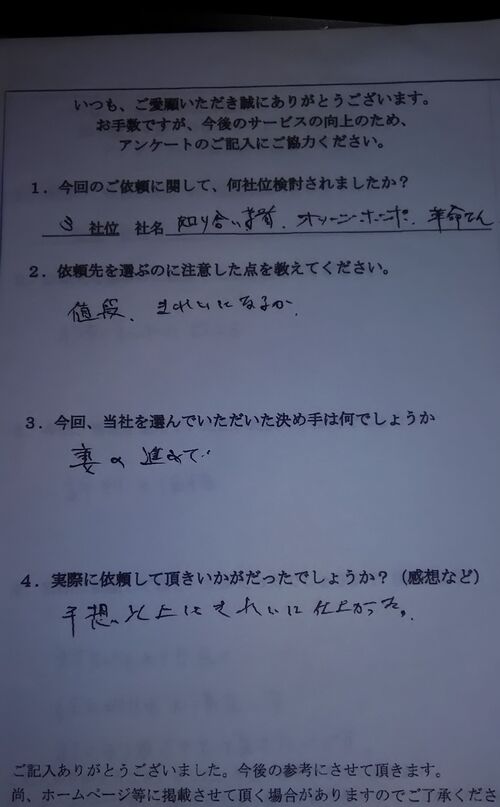 いつも、ご愛願いただき誠にありがとうございます。
お手数ですが、今後のサービスの向上のため、
アンケートのご記入にご協力ください。
１．今回のご依頼に関して、何社位検討されましたか？
3 社位 社名 知り合い業者、オソージホンポ、革命さん
２．依頼先を選ぶのに注意した点を教えてください。
値段、きれいになるか、
３．今回、当社を選んでいただいた決め手は何でしょうか
妻の進めで
４．実際に依頼して頂きいかがだったでしょうか？（感想など）
予想以上にきれいに仕上がった。
ご記入ありがとうございました。今後の参考にさせて頂きます。
尚、ホームページ等に掲載させて頂く場合がありますのでご了承くださ